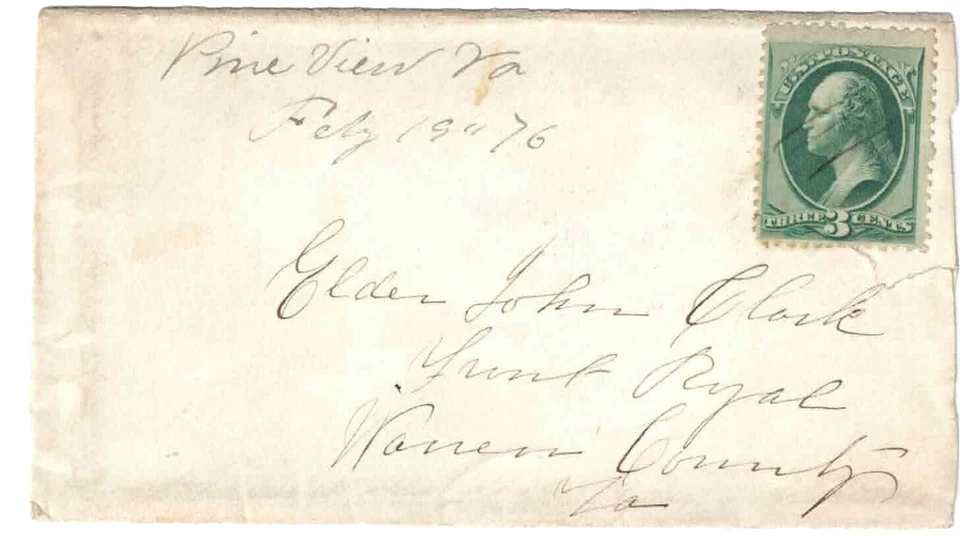 Pine View Va
Feby 19" 76
U.S. POSTAGE
THREE 3 CENTS
Elder John Clark
Frunt Ryal
Warren County
Va